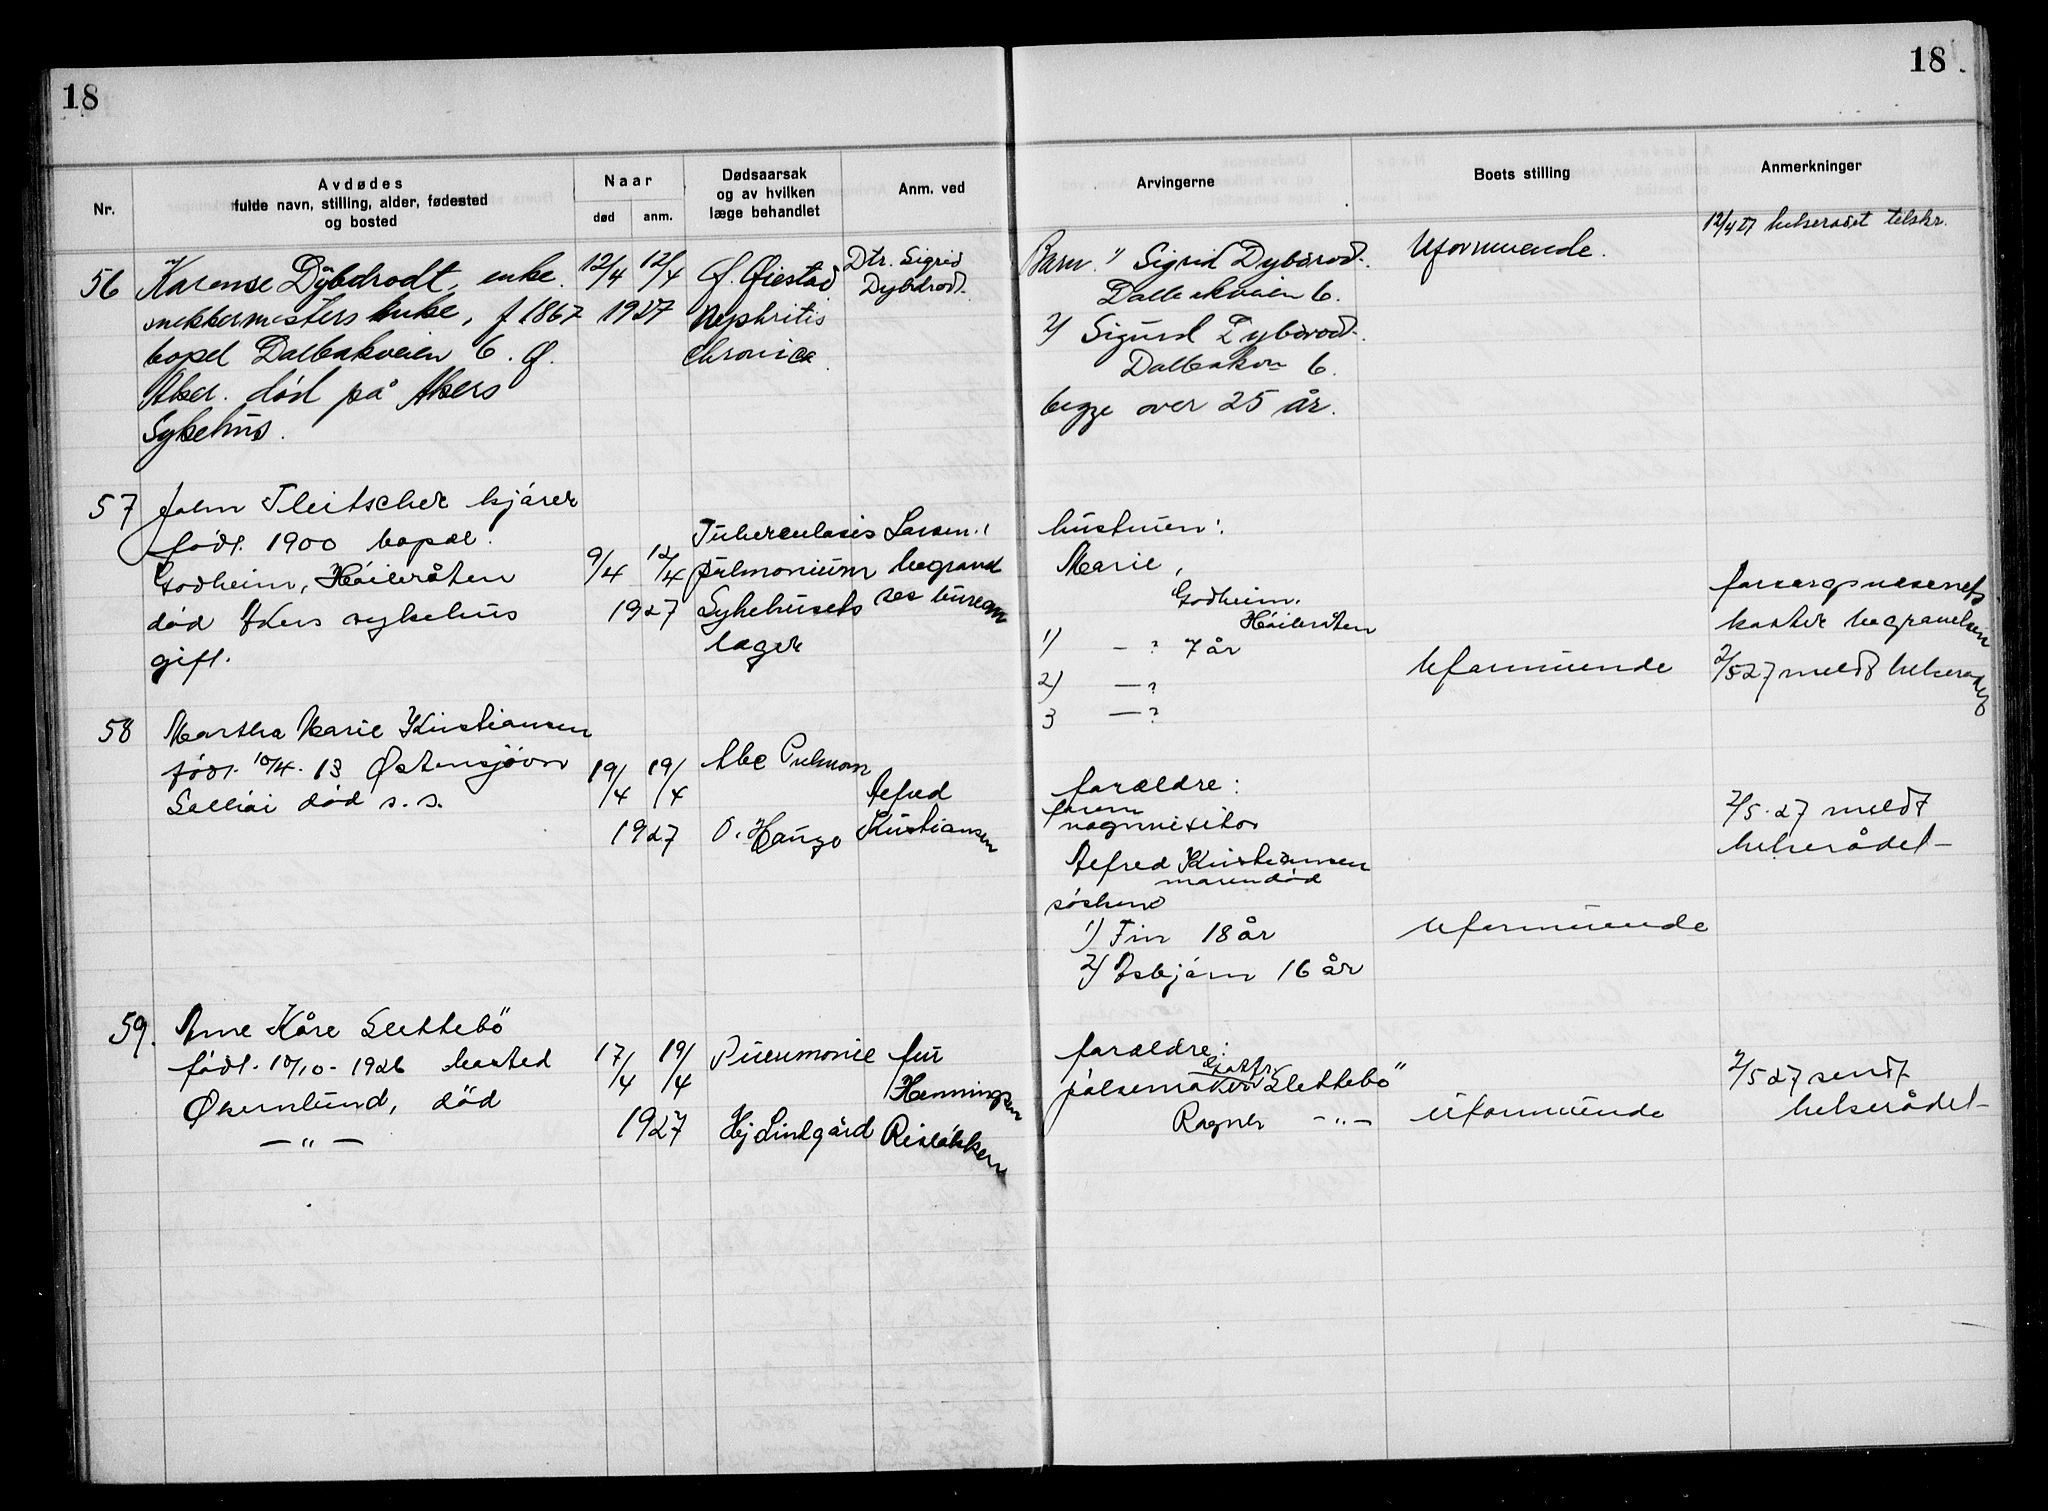 18
18
Nr.
Avdødes
fulde navn, stilling, alder, fødested
og bosted
Naar
død
anm.
Dødsaarsak
og av hvilken
læge behandlet
Anm. ved
Arvingerne
Boets stilling
Anmerkninger
56
Karense Dybdrodt, enke.
snekkermesters enke, f 1867
bopel Dalbakveien 6. Ø.
Aker. død på Akers
Sykehus.
12/4 12/4
1927
Ø. Øiestad
Nephritis
chronica
Dtr. Sigrid
Dybdrod.
Barn: 1) Sigrid Dybdrod.
Dalbakveien 6.
2) Sigurd Dybdrod.
Dalbakvn 6.
begge over 25 år.
Uformuende.
12/4 27 helserådet tilskr.
57
John Fleitscher kjører
født. 1900 bopæl:
Godheim, Høibråten
død Akers sykehus
gift.
9/4 12/4
1927
Tuberculosis
pulmonium
Sykehusets
læger
Larsen's
begravel
ses bureau
hustruen:
Marie,
Godheim,
Høibråten
1) — ? 7 år
2) — ?
3 — ?
Uformuende
forsørgsvesenet
koster begravelsen
2/5 27 meldt helserådet
58
Martha Marie Kristiansen
født. 10/4. 13 Østensjøvn
død s. s.
19/4 19/4
1927
Abc Pulmon
O. Hauge
Alfred
Kristiansen
forældre:
faren
vognvisitør
Alfred Kristiansen
moren død
søskend
1) Fin 18 år
2) Asbjørn 16 år
Uformuende
2/5. 27 meldt
helserådet —
59.
Arne Kåre Slettebö
født. 10/10 - 1926 bosted
Økernlund, død
— " —
17/4 19/4
1927
Pneumonie
Hj Lindgård
fru
Henningsen
Risløkken
forældre:
pølsemaker Slettebö
Ragna — " —
Uformuende
2/5 27 sendt
helserådet —